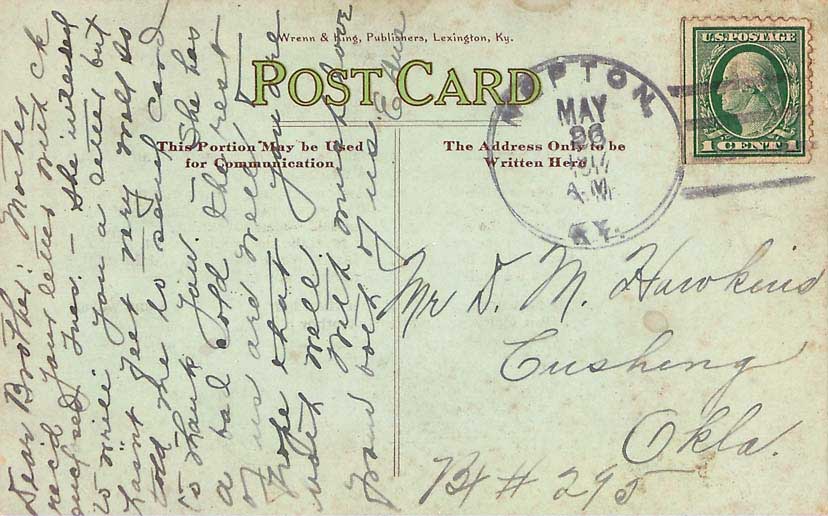 Wrenn & King, Publishers, Lexington, Ky.
POST CARD
This Portion May be Used
for Communication
The Address Only to be
Written Here
U.S. POSTAGE
1 CENT 1
MAY
A.M.
KY.
Dear Brother: Mother
rec'd your letter with ck
enclosed, Tues. – She intended
to write you a letter but
hasn't felt very well so
told me to send card
to thank you. She has
a bad cold. The rest
of us are well &
hope that you are
well. With much love
from both of us. Edna
Mr D. M. Hawkins
Cushing
Okla.
Bx # 295